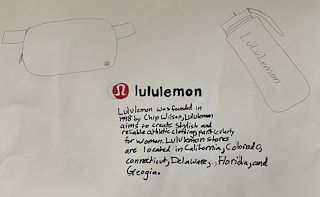 Lululemon
lululemon
Lululemon was founded in
1998 by Chip Wilson, Lululemon
aims to create stylish and
reliable athletic clothing, particularly
for women. Lululemon stores
are located in California, Colorado,
connecticut, Delaware, Florida, and
Geogia.